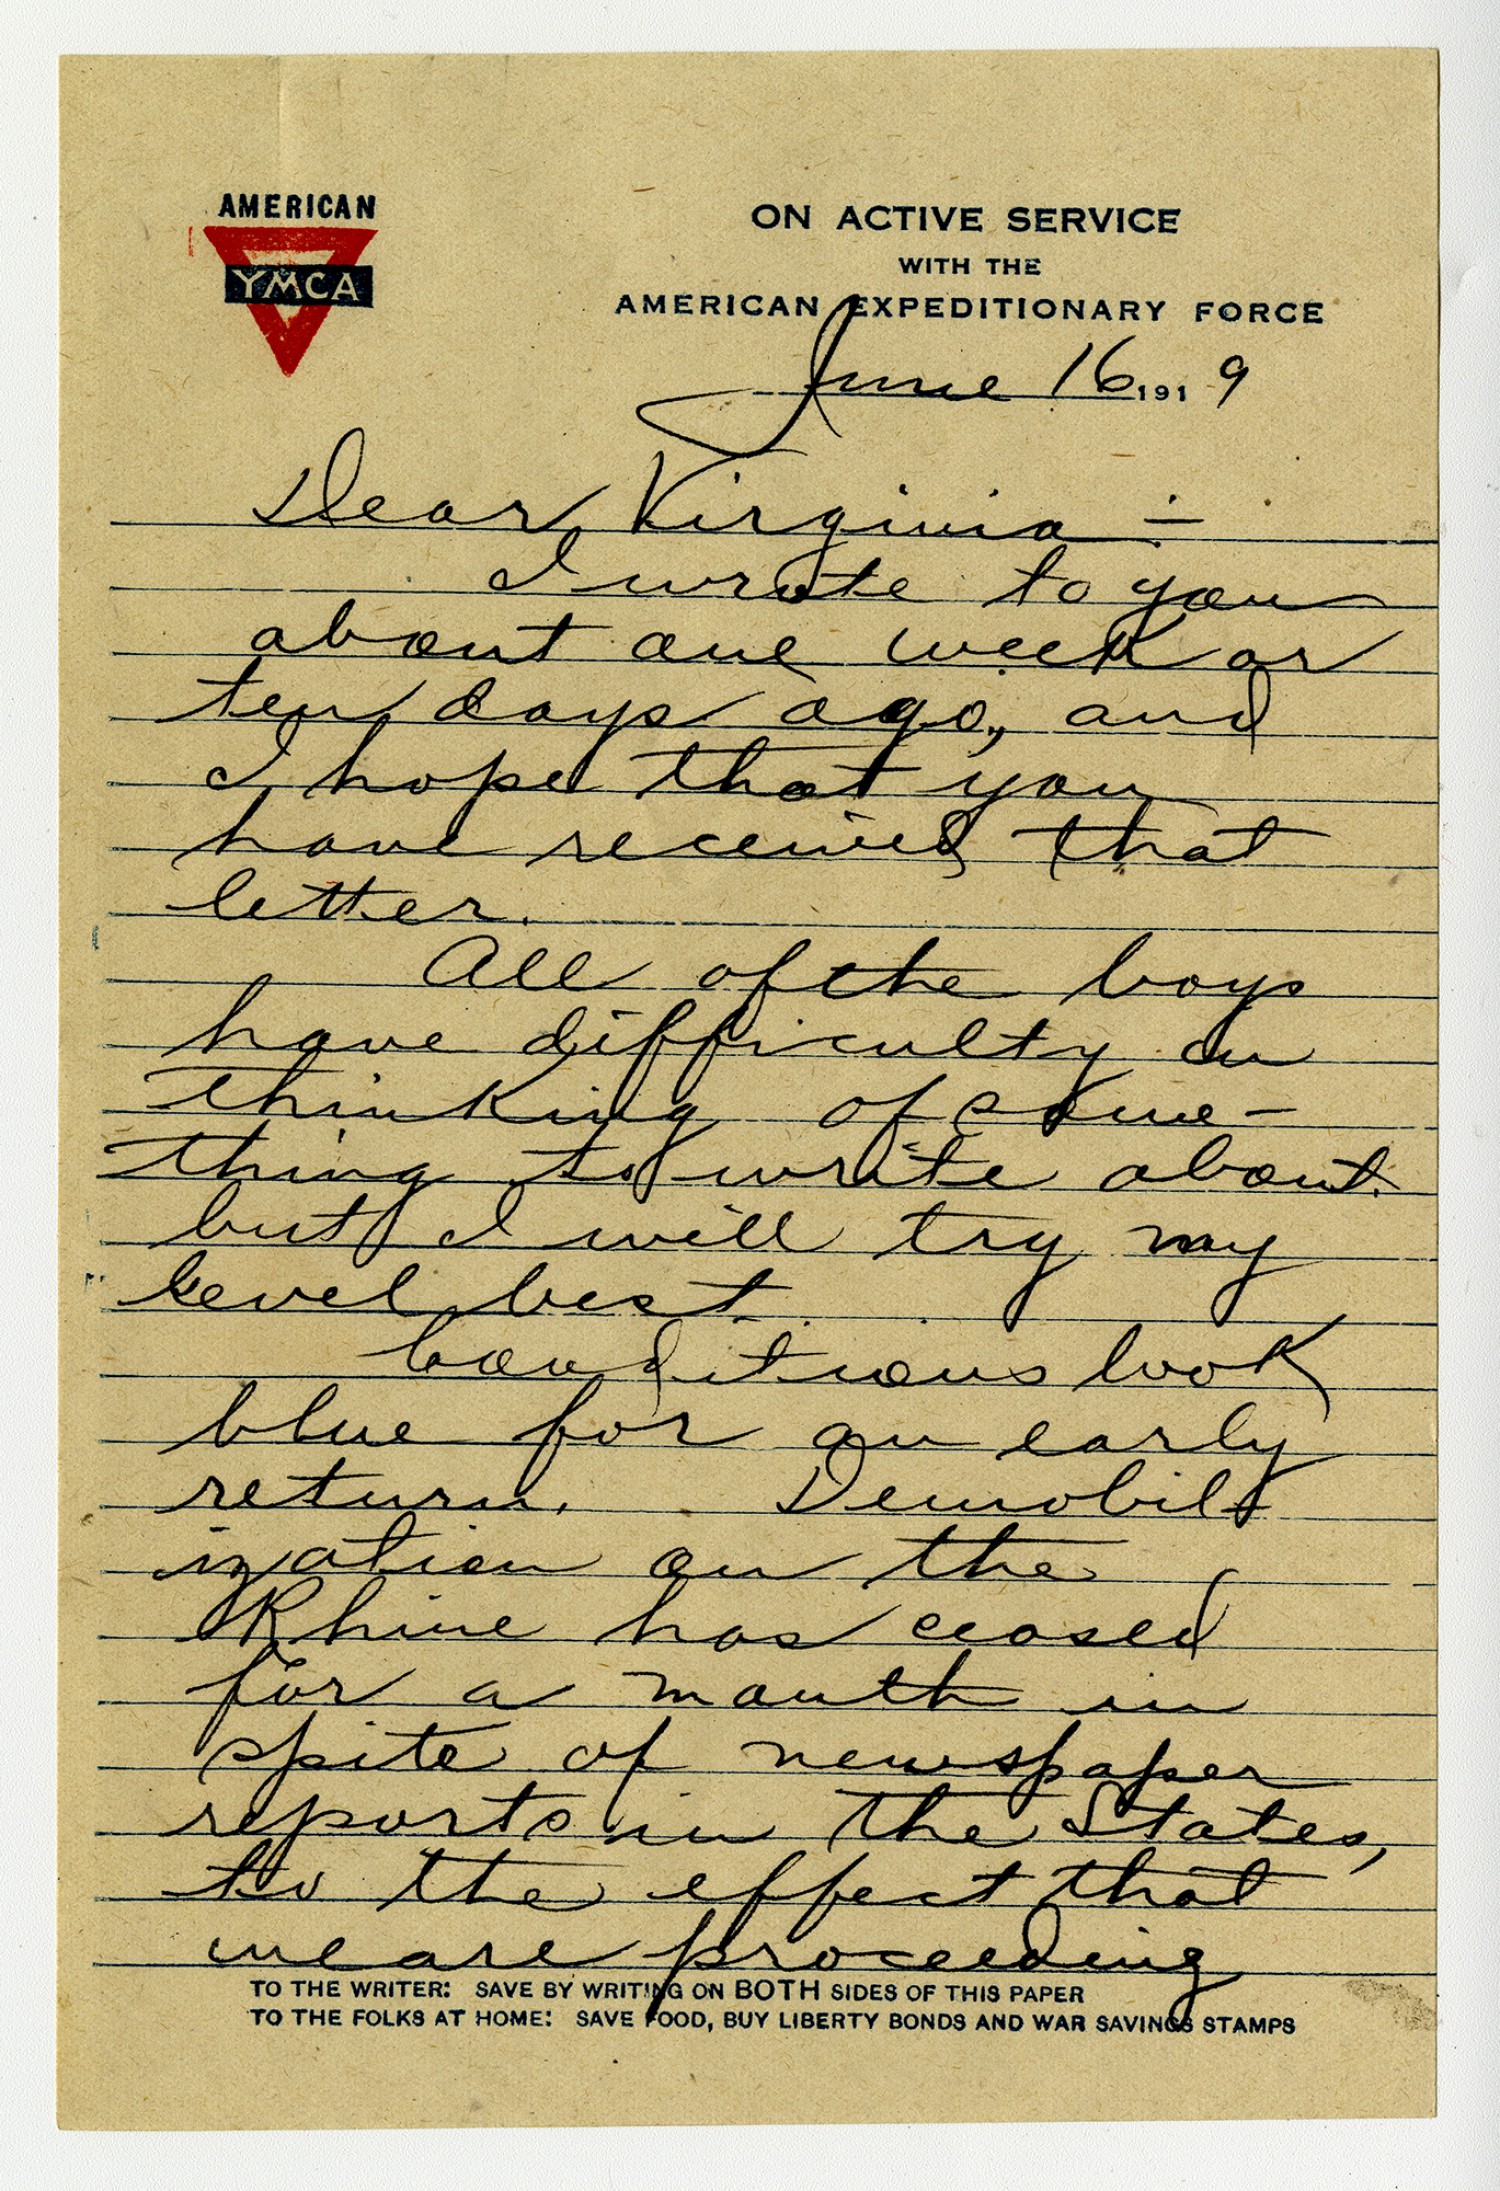 AMERICAN
YMCA
ON ACTIVE SERVICE
WITH THE
AMERICAN EXPEDITIONARY FORCE
June 16, 1919
Dear Virginia -
I wrote to you
about one week or
ten days ago, and
I hope that you
have received that
letter.
All of the boys
have difficulty in
thinking of some-
thing to write about
but I will try my
level best.
Conditions look
blue for an early
return. Demobil-
ization on the
Rhine has ceased
for a month in
spite of newspaper
reports in the States,
to the effect that
we are proceeding
TO THE WRITER: SAVE BY WRITING ON BOTH SIDES OF THIS PAPER
TO THE FOLKS AT HOME: SAVE FOOD, BUY LIBERTY BONDS AND WAR SAVINGS STAMPS